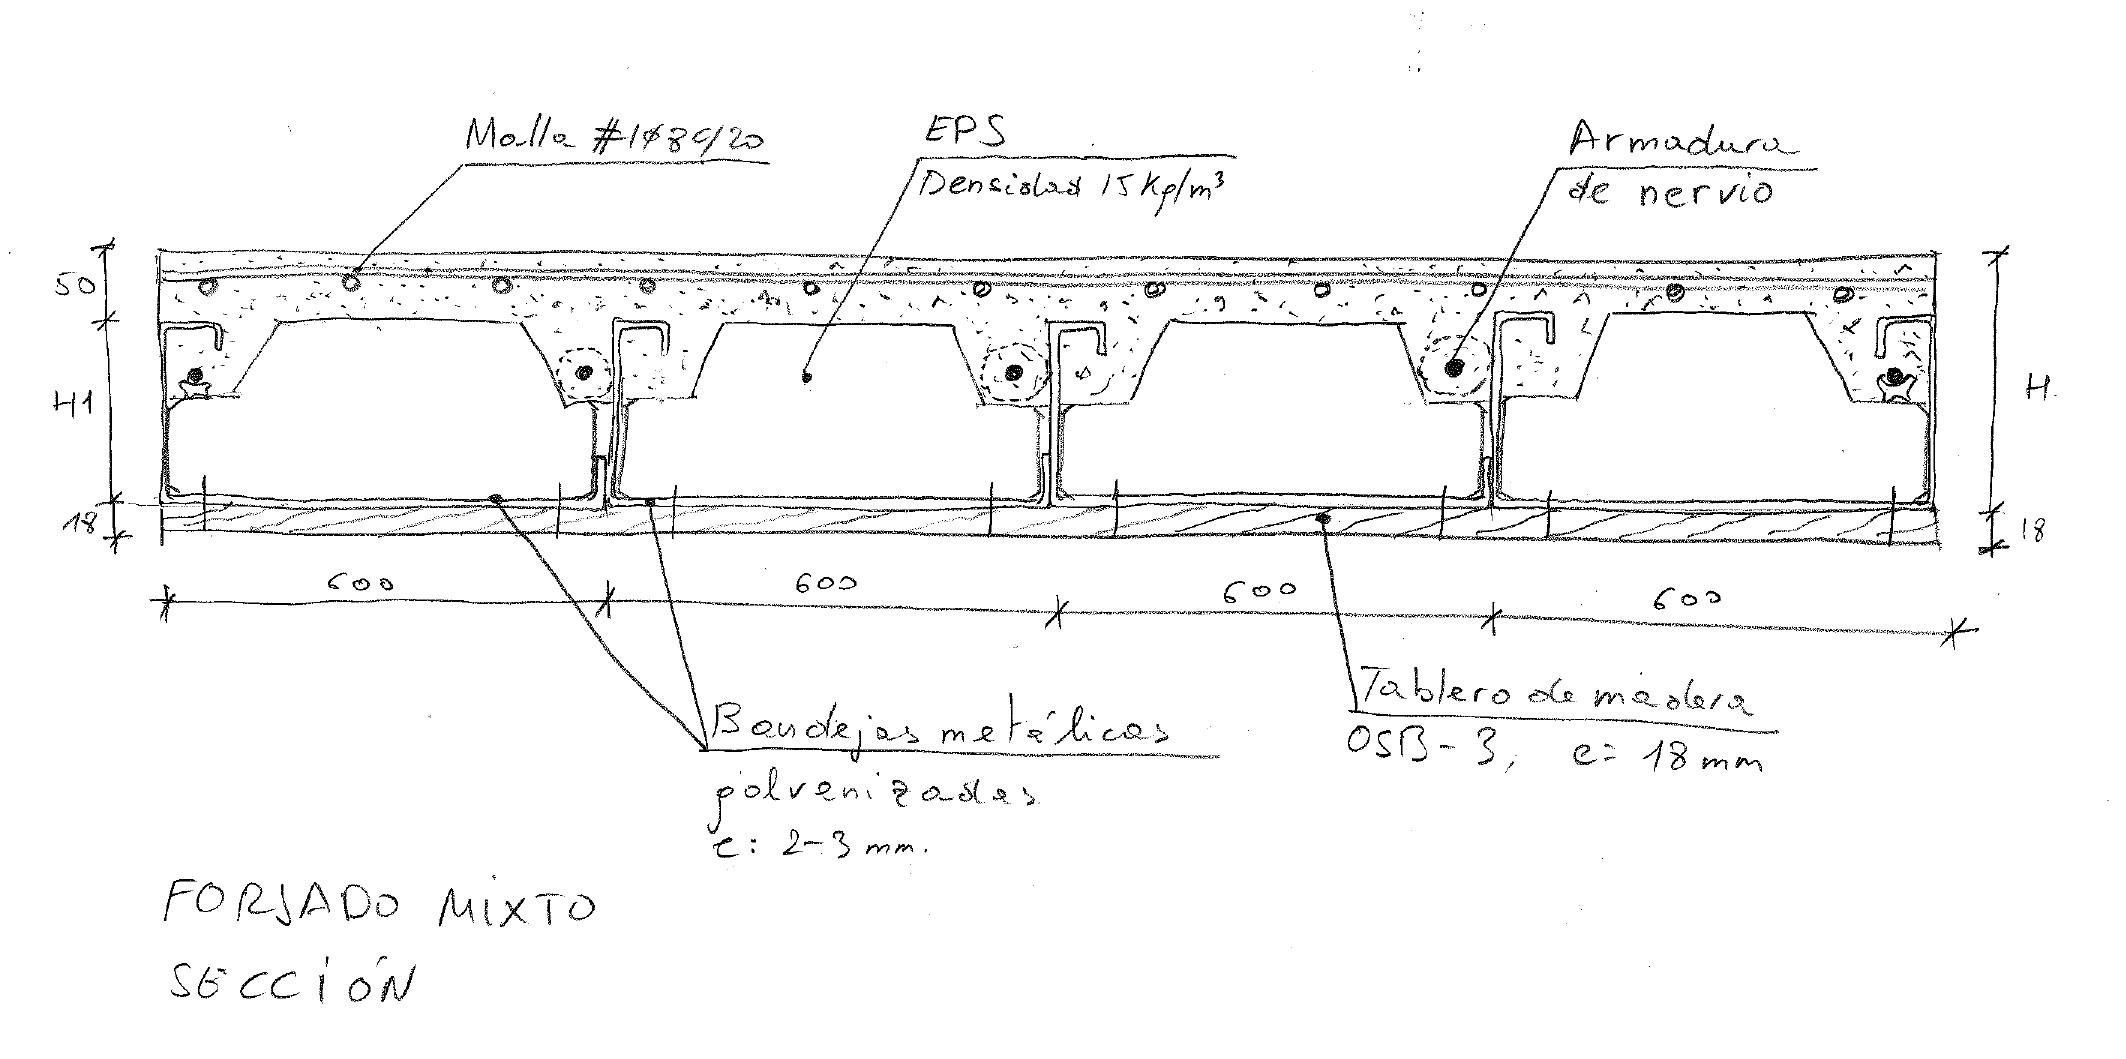 Malla #1Ø8c/20
EPS
Densidad 15 Kg/m³
Armadura
de nervio
50
H1
18
H
18
600
600
600
600
Bandejas metálicas
galvanizadas
e: 2-3 mm.
Tablero de madera
OSB-3, e= 18 mm
FORJADO MIXTO
SECCIÓN